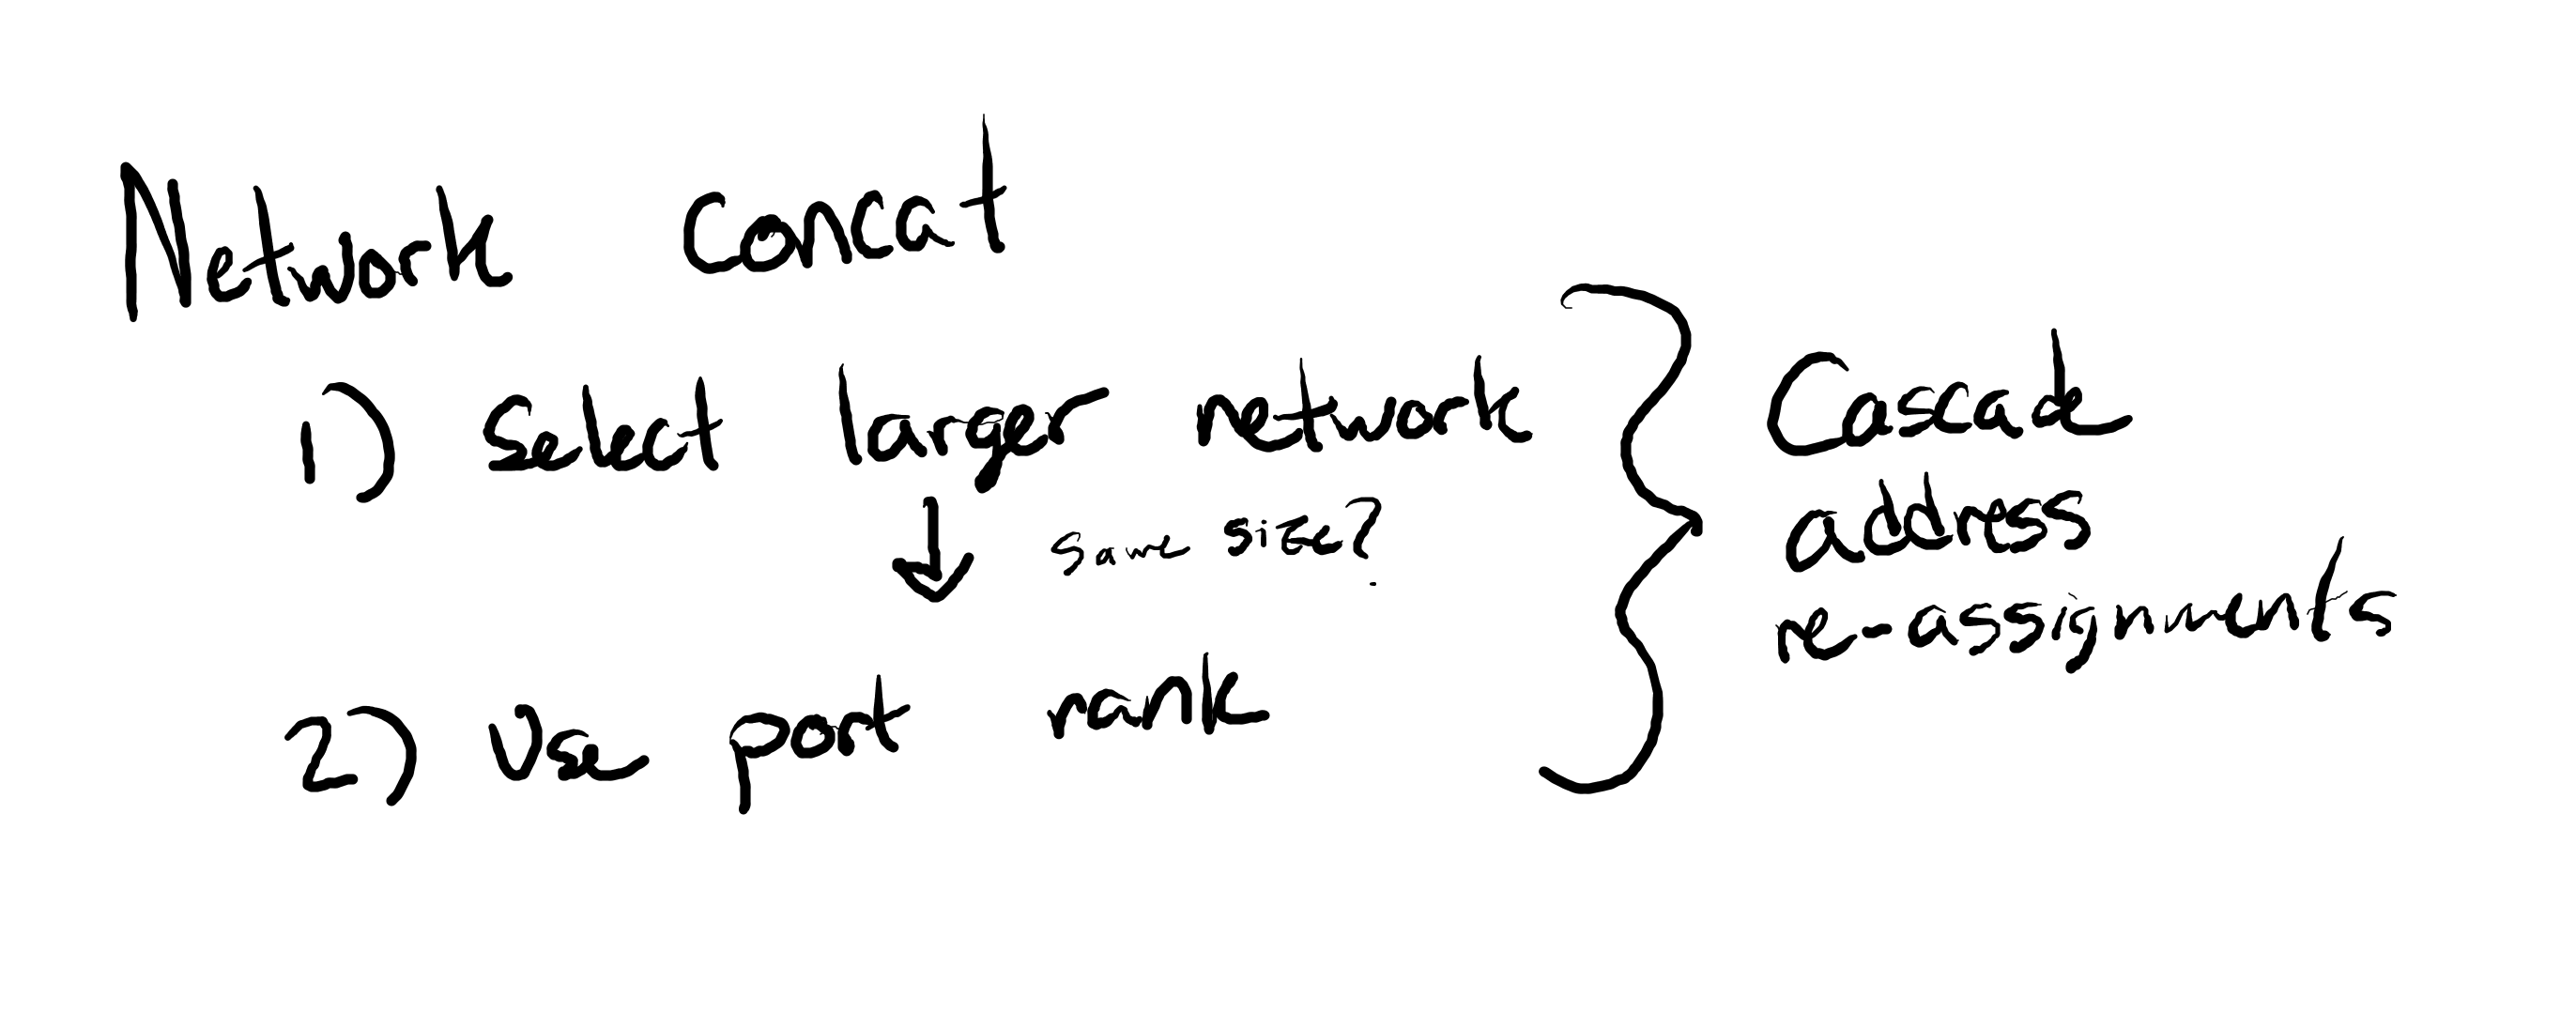 Network concat
1) Select larger network
same size?
2) Use port rank
Cascade
address
re-assignments